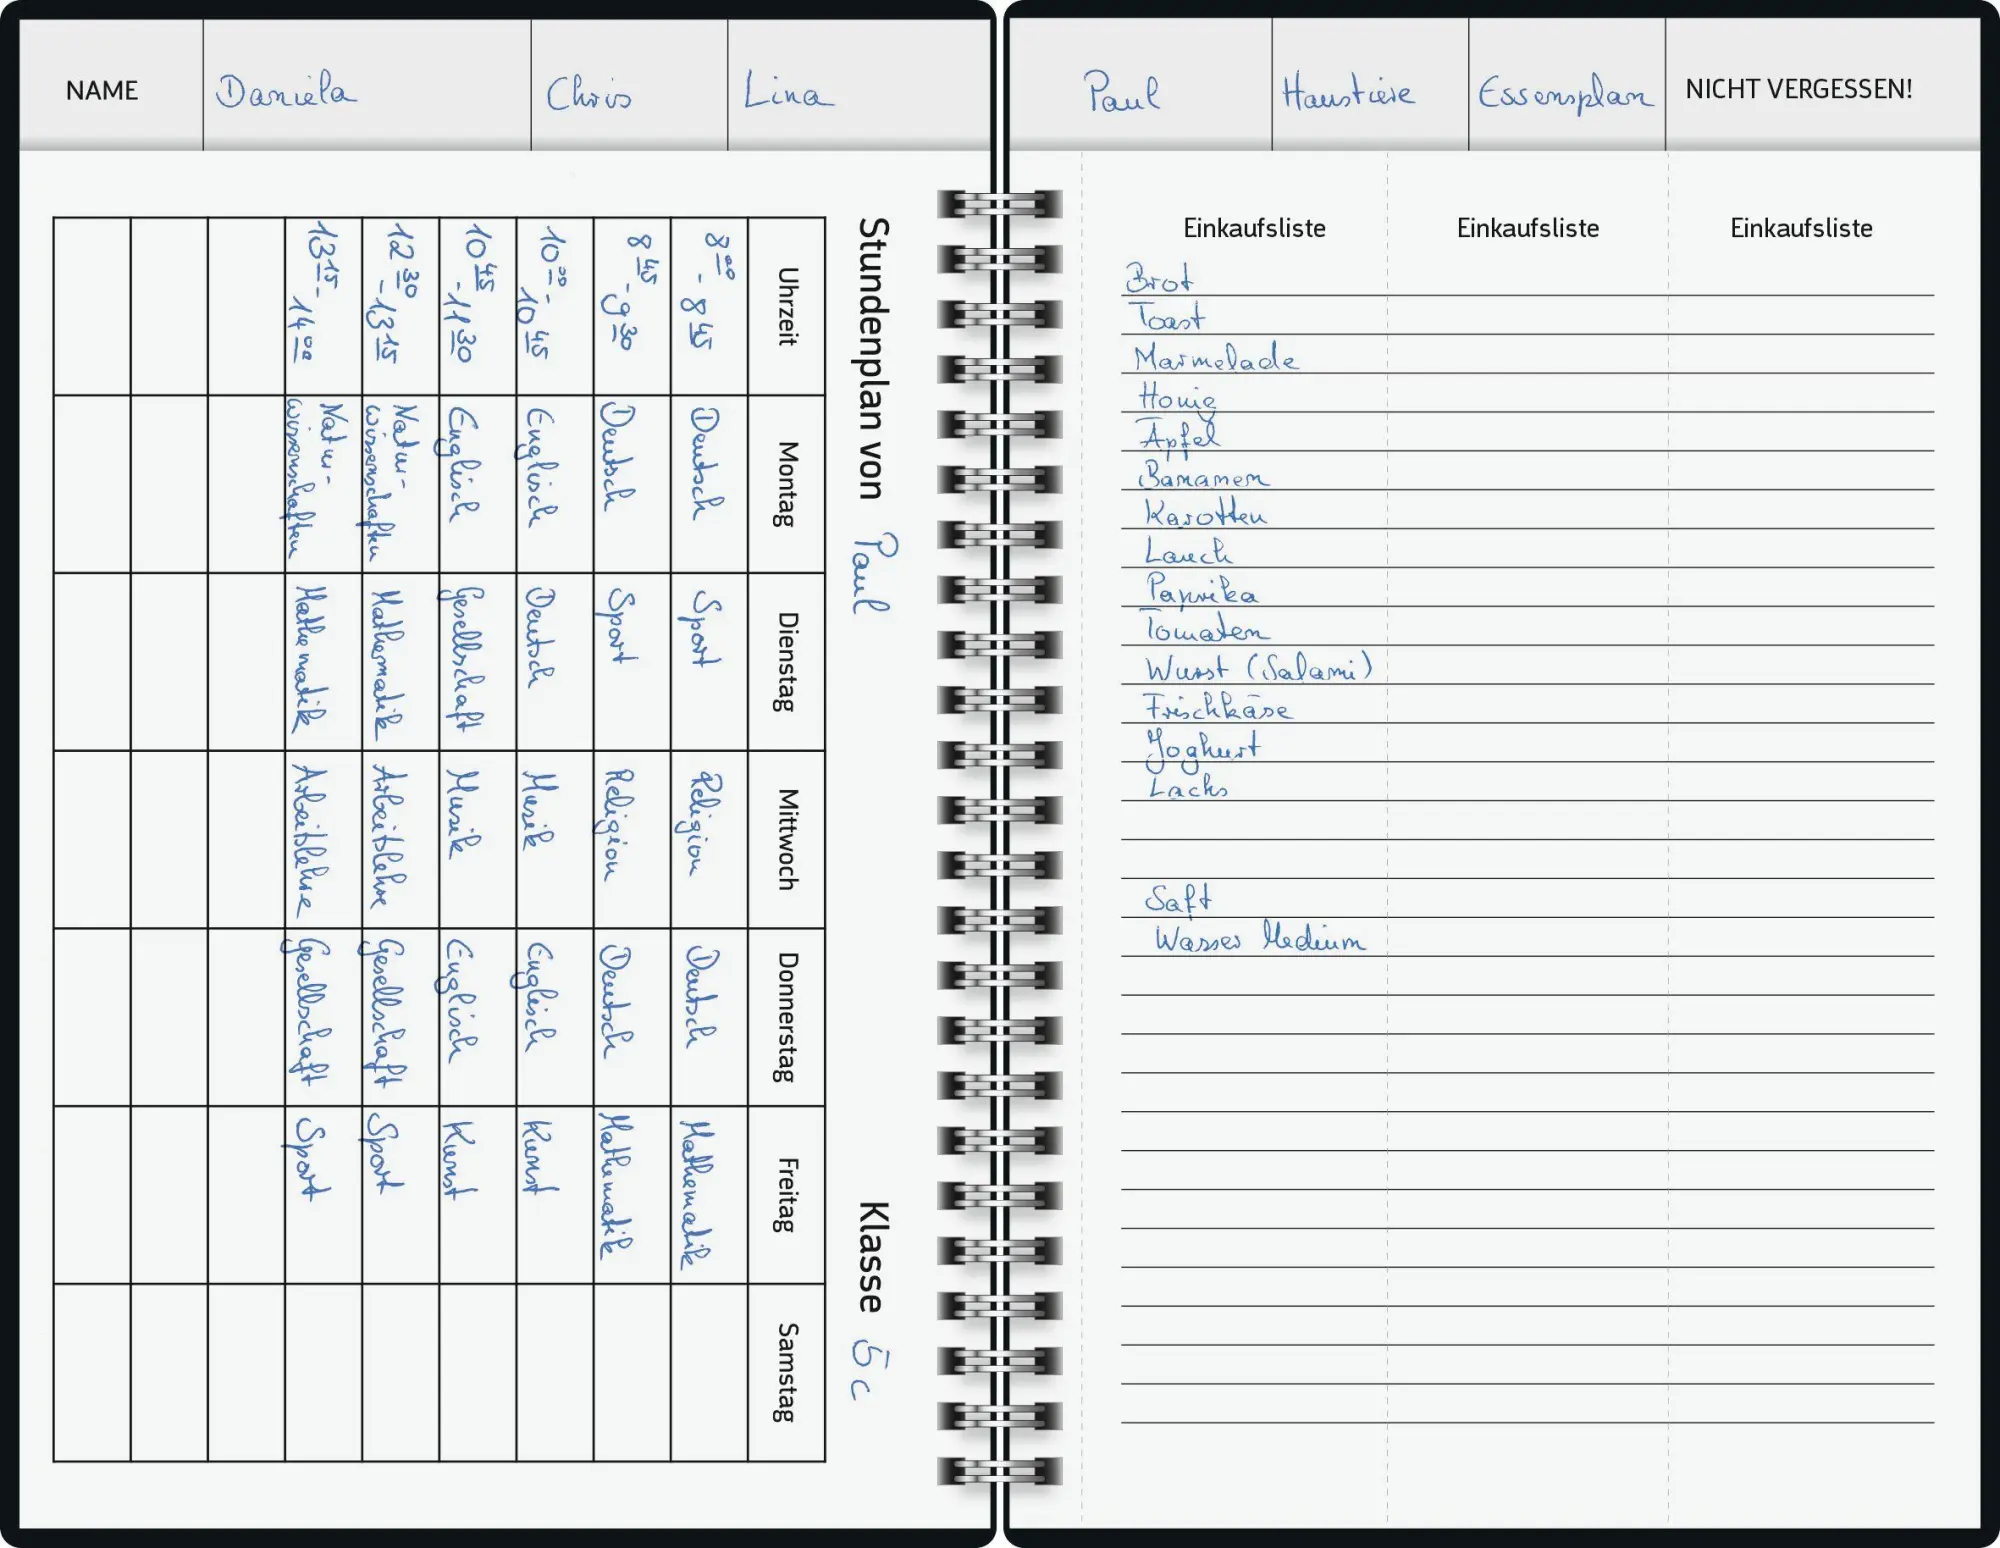 NAME Daniela Chris Lina Paul Haustiere Essensplan NICHT VERGESSEN!
Stundenplan von Paul Klasse 5c
Uhrzeit Montag Dienstag Mittwoch Donnerstag Freitag Samstag
8 00 - 8 45 Deutsch Sport Religion Deutsch Mathematik
8 45 - 9 30 Deutsch Sport Religion Deutsch Mathematik
10 00 - 10 45 Englisch Deutsch Musik Englisch Kunst
10 45 - 11 30 Englisch Gesellschaft Musik Englisch Kunst
12 30 - 13 15 Natur- Mathematik Arbeitslehre Gesellschaft Sport
wissenschaften
13 15 - 14 00 Natur- Mathematik Arbeitslehre Gesellschaft Sport
wissenschaften
Einkaufsliste Einkaufsliste Einkaufsliste
Brot
Toast
Marmelade
Honig
Äpfel
Bananen
Karotten
Lauch
Paprika
Tomaten
Wurst (Salami)
Frischkäse
Joghurt
Lachs
Saft
Wasser Medium